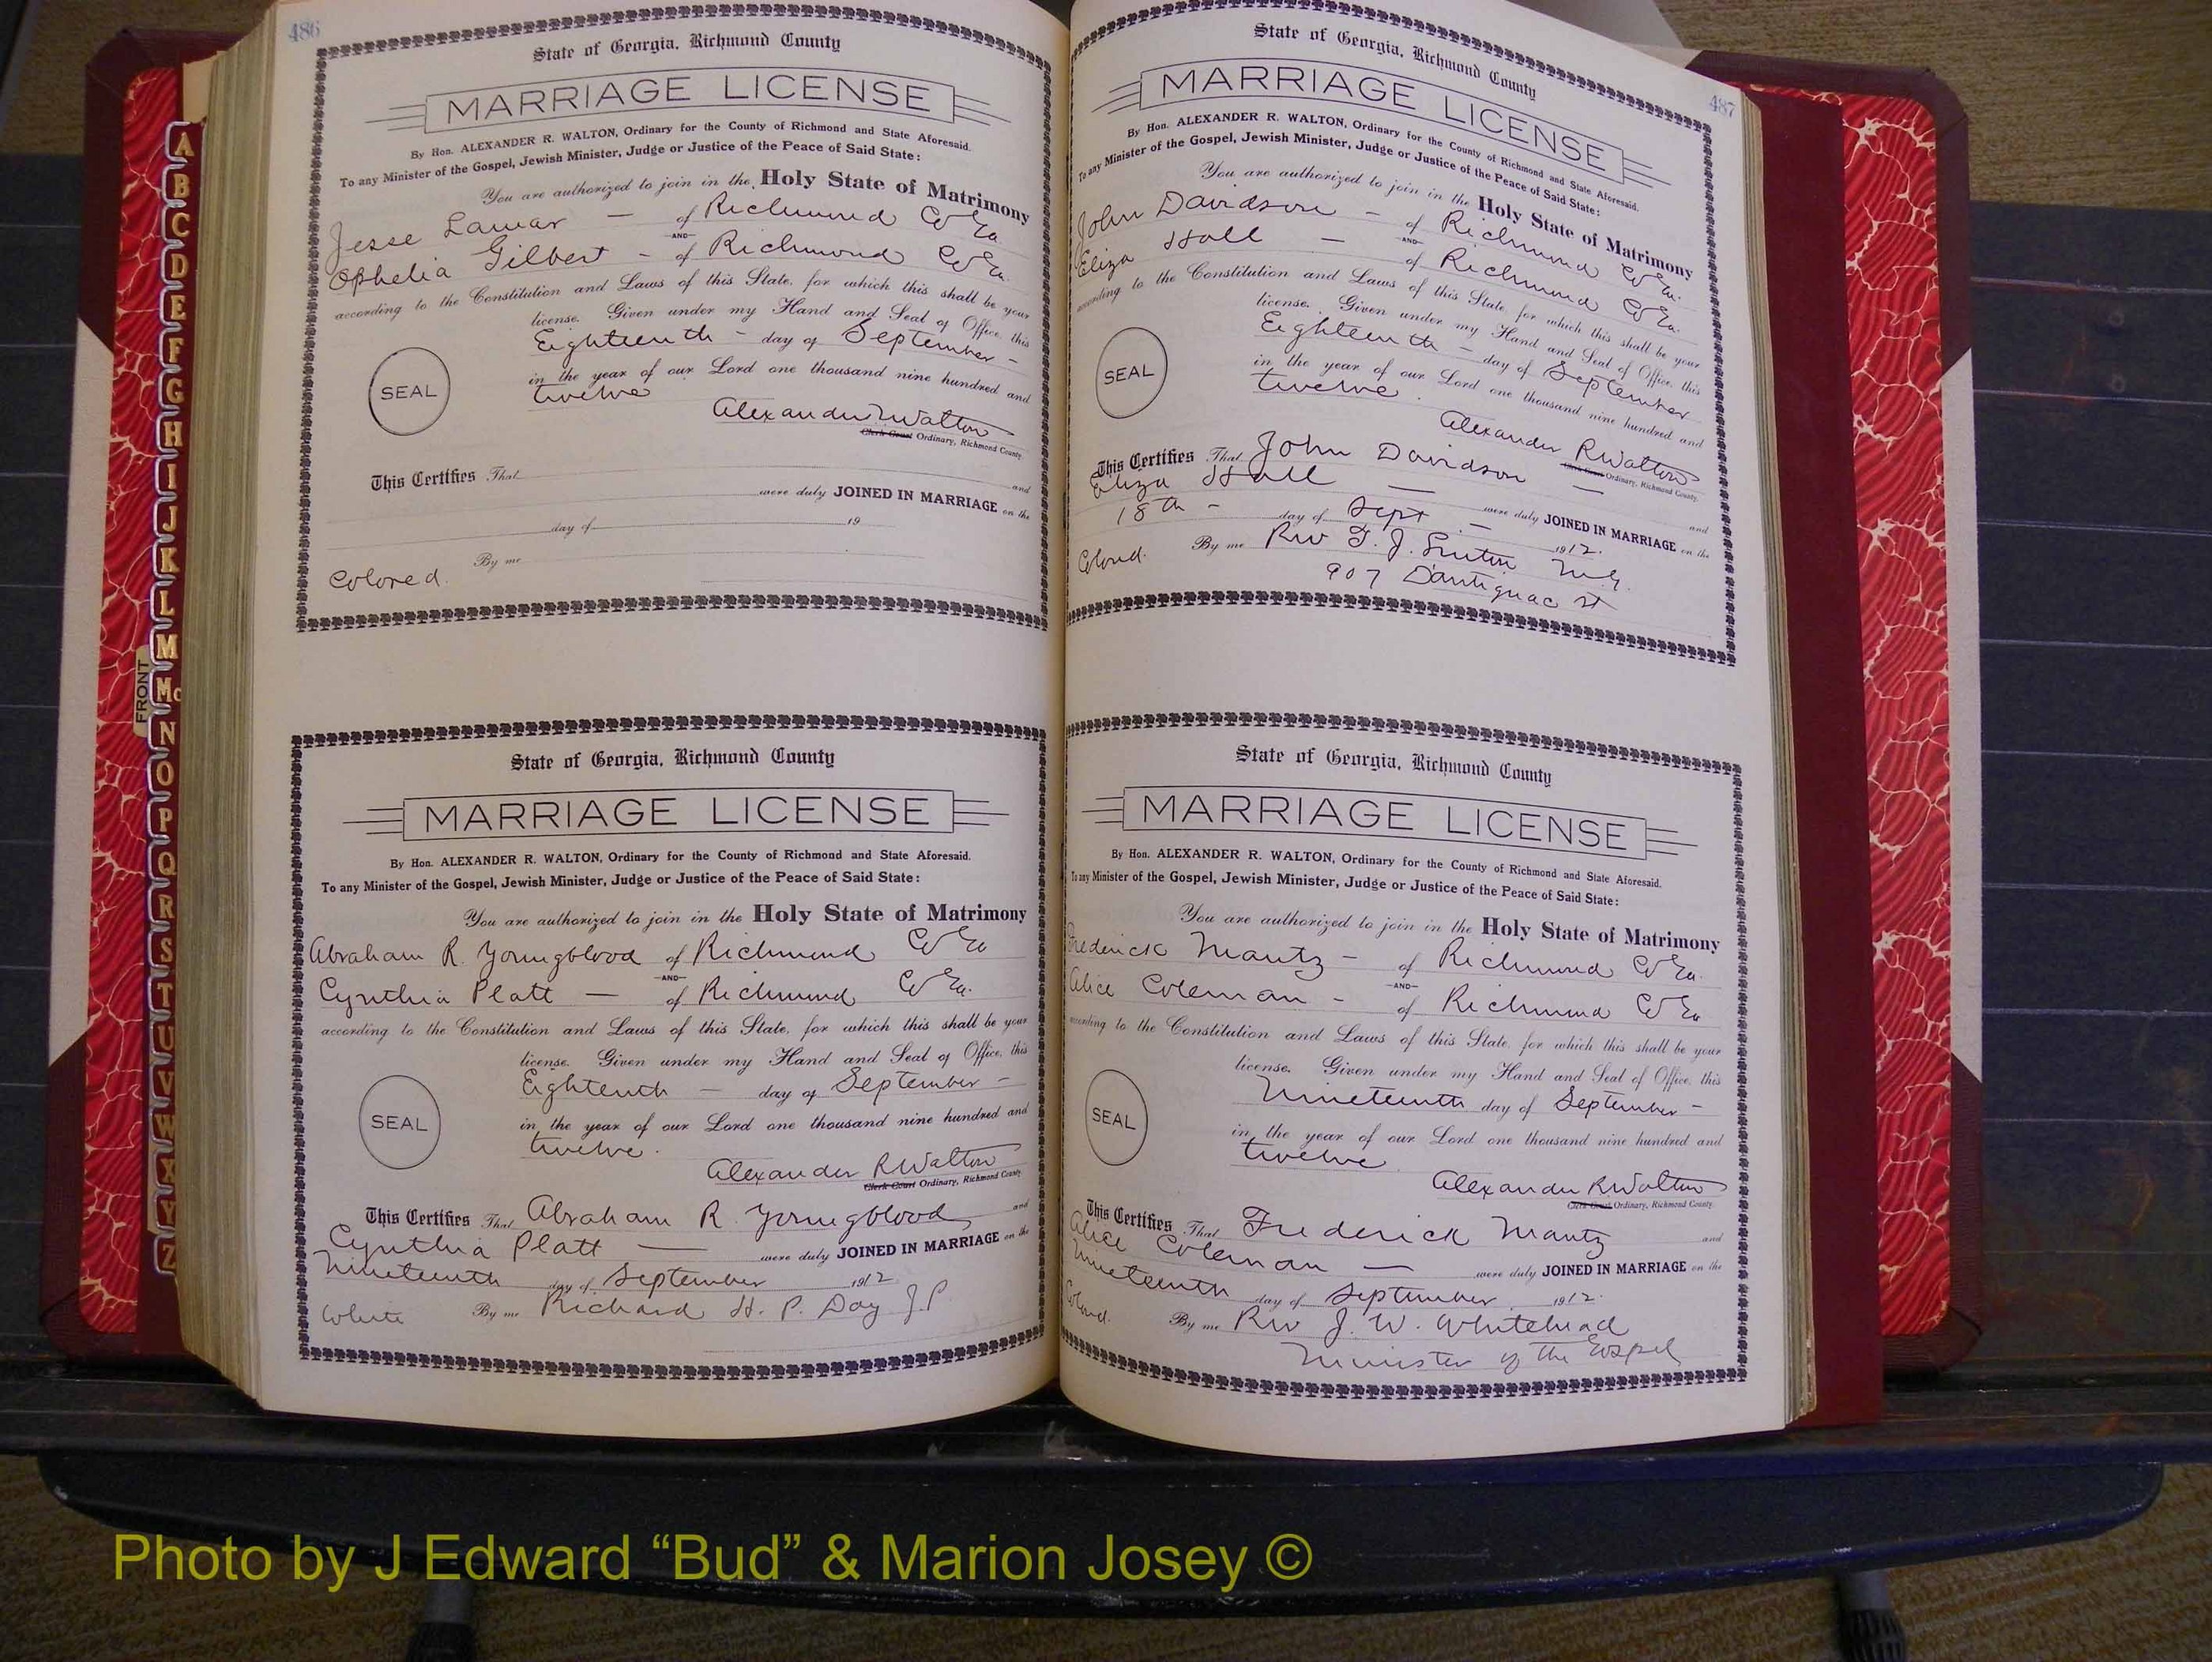 486
State of Georgia, Richmond County
MARRIAGE LICENSE
By Hon. ALEXANDER R. WALTON, Ordinary for the County of Richmond and State Aforesaid.
To any Minister of the Gospel, Jewish Minister, Judge or Justice of the Peace of Said State:
You are authorized to join in the Holy State of Matrimony
Jesse Lamar — of Richmond Co Ga
AND
Ophelia Gilbert - of Richmond Co Ga.
according to the Constitution and Laws of this State, for which this shall be your
license. Given under my Hand and Seal of Office, this
Eighteenth - day of September -
in the year of our Lord one thousand nine hundred and
SEAL
twelve
Alexander R Walton
Clerk Court Ordinary, Richmond County
This Certifies That and
were duly JOINED IN MARRIAGE on the
day of 19
By me
Colored.
State of Georgia, Richmond County
MARRIAGE LICENSE
By Hon. ALEXANDER R. WALTON, Ordinary for the County of Richmond and State Aforesaid.
To any Minister of the Gospel, Jewish Minister, Judge or Justice of the Peace of Said State:
You are authorized to join in the Holy State of Matrimony
Abraham R. Youngblood of Richmond Co Ga
AND
Cynthia Platt — of Richmond Co Ga.
according to the Constitution and Laws of this State, for which this shall be your
license. Given under my Hand and Seal of Office, this
Eighteenth — day of September -
SEAL
in the year of our Lord one thousand nine hundred and
twelve.
Alexander R Walton
Clerk Court Ordinary, Richmond County
This Certifies That Abraham R. Youngblood and
Cynthia Platt — were duly JOINED IN MARRIAGE on the
Nineteenth day of September 1912
White By me Richard H. P. Day J.P.
487
State of Georgia, Richmond County
MARRIAGE LICENSE
By Hon. ALEXANDER R. WALTON, Ordinary for the County of Richmond and State Aforesaid.
To any Minister of the Gospel, Jewish Minister, Judge or Justice of the Peace of Said State:
You are authorized to join in the Holy State of Matrimony
John Davidson - of Richmond Co Ga.
AND
Eliza Hall — of Richmond Co Ga.
according to the Constitution and Laws of this State, for which this shall be your
license. Given under my Hand and Seal of Office, this
Eighteenth - day of September
SEAL
in the year of our Lord one thousand nine hundred and
twelve.
Alexander R Walton
Clerk Court Ordinary, Richmond County.
This Certifies That John Davidson — and
Eliza Hall — were duly JOINED IN MARRIAGE on the
18th - day of Sept - 1912.
Colored. By me Rev T. J. M.G.
907 D'Antignac st
State of Georgia, Richmond County
MARRIAGE LICENSE
By Hon. ALEXANDER R. WALTON, Ordinary for the County of Richmond and State Aforesaid.
To any Minister of the Gospel, Jewish Minister, Judge or Justice of the Peace of Said State:
You are authorized to join in the Holy State of Matrimony
Frederick Mantz - of Richmond Co Ga.
AND
Alice Coleman - of Richmond Co Ga
according to the Constitution and Laws of this State, for which this shall be your
license. Given under my Hand and Seal of Office, this
Nineteenth day of September -
SEAL
in the year of our Lord one thousand nine hundred and
twelve
Alexander R Walton
Clerk Court Ordinary, Richmond County
This Certifies That Frederick Mantz and
Alice Coleman — were duly JOINED IN MARRIAGE on the
Nineteenth day of September 1912.
Colored. By me Rev J. W. Whitehead
Minister of the Gospel
A
B
C
D
E
F
G
H
I
J
K
L
M
Mc
N
O
P
Q
R
S
T
U
V
W
X
Y
Z
FRONT
Photo by J Edward “Bud” & Marion Josey ©